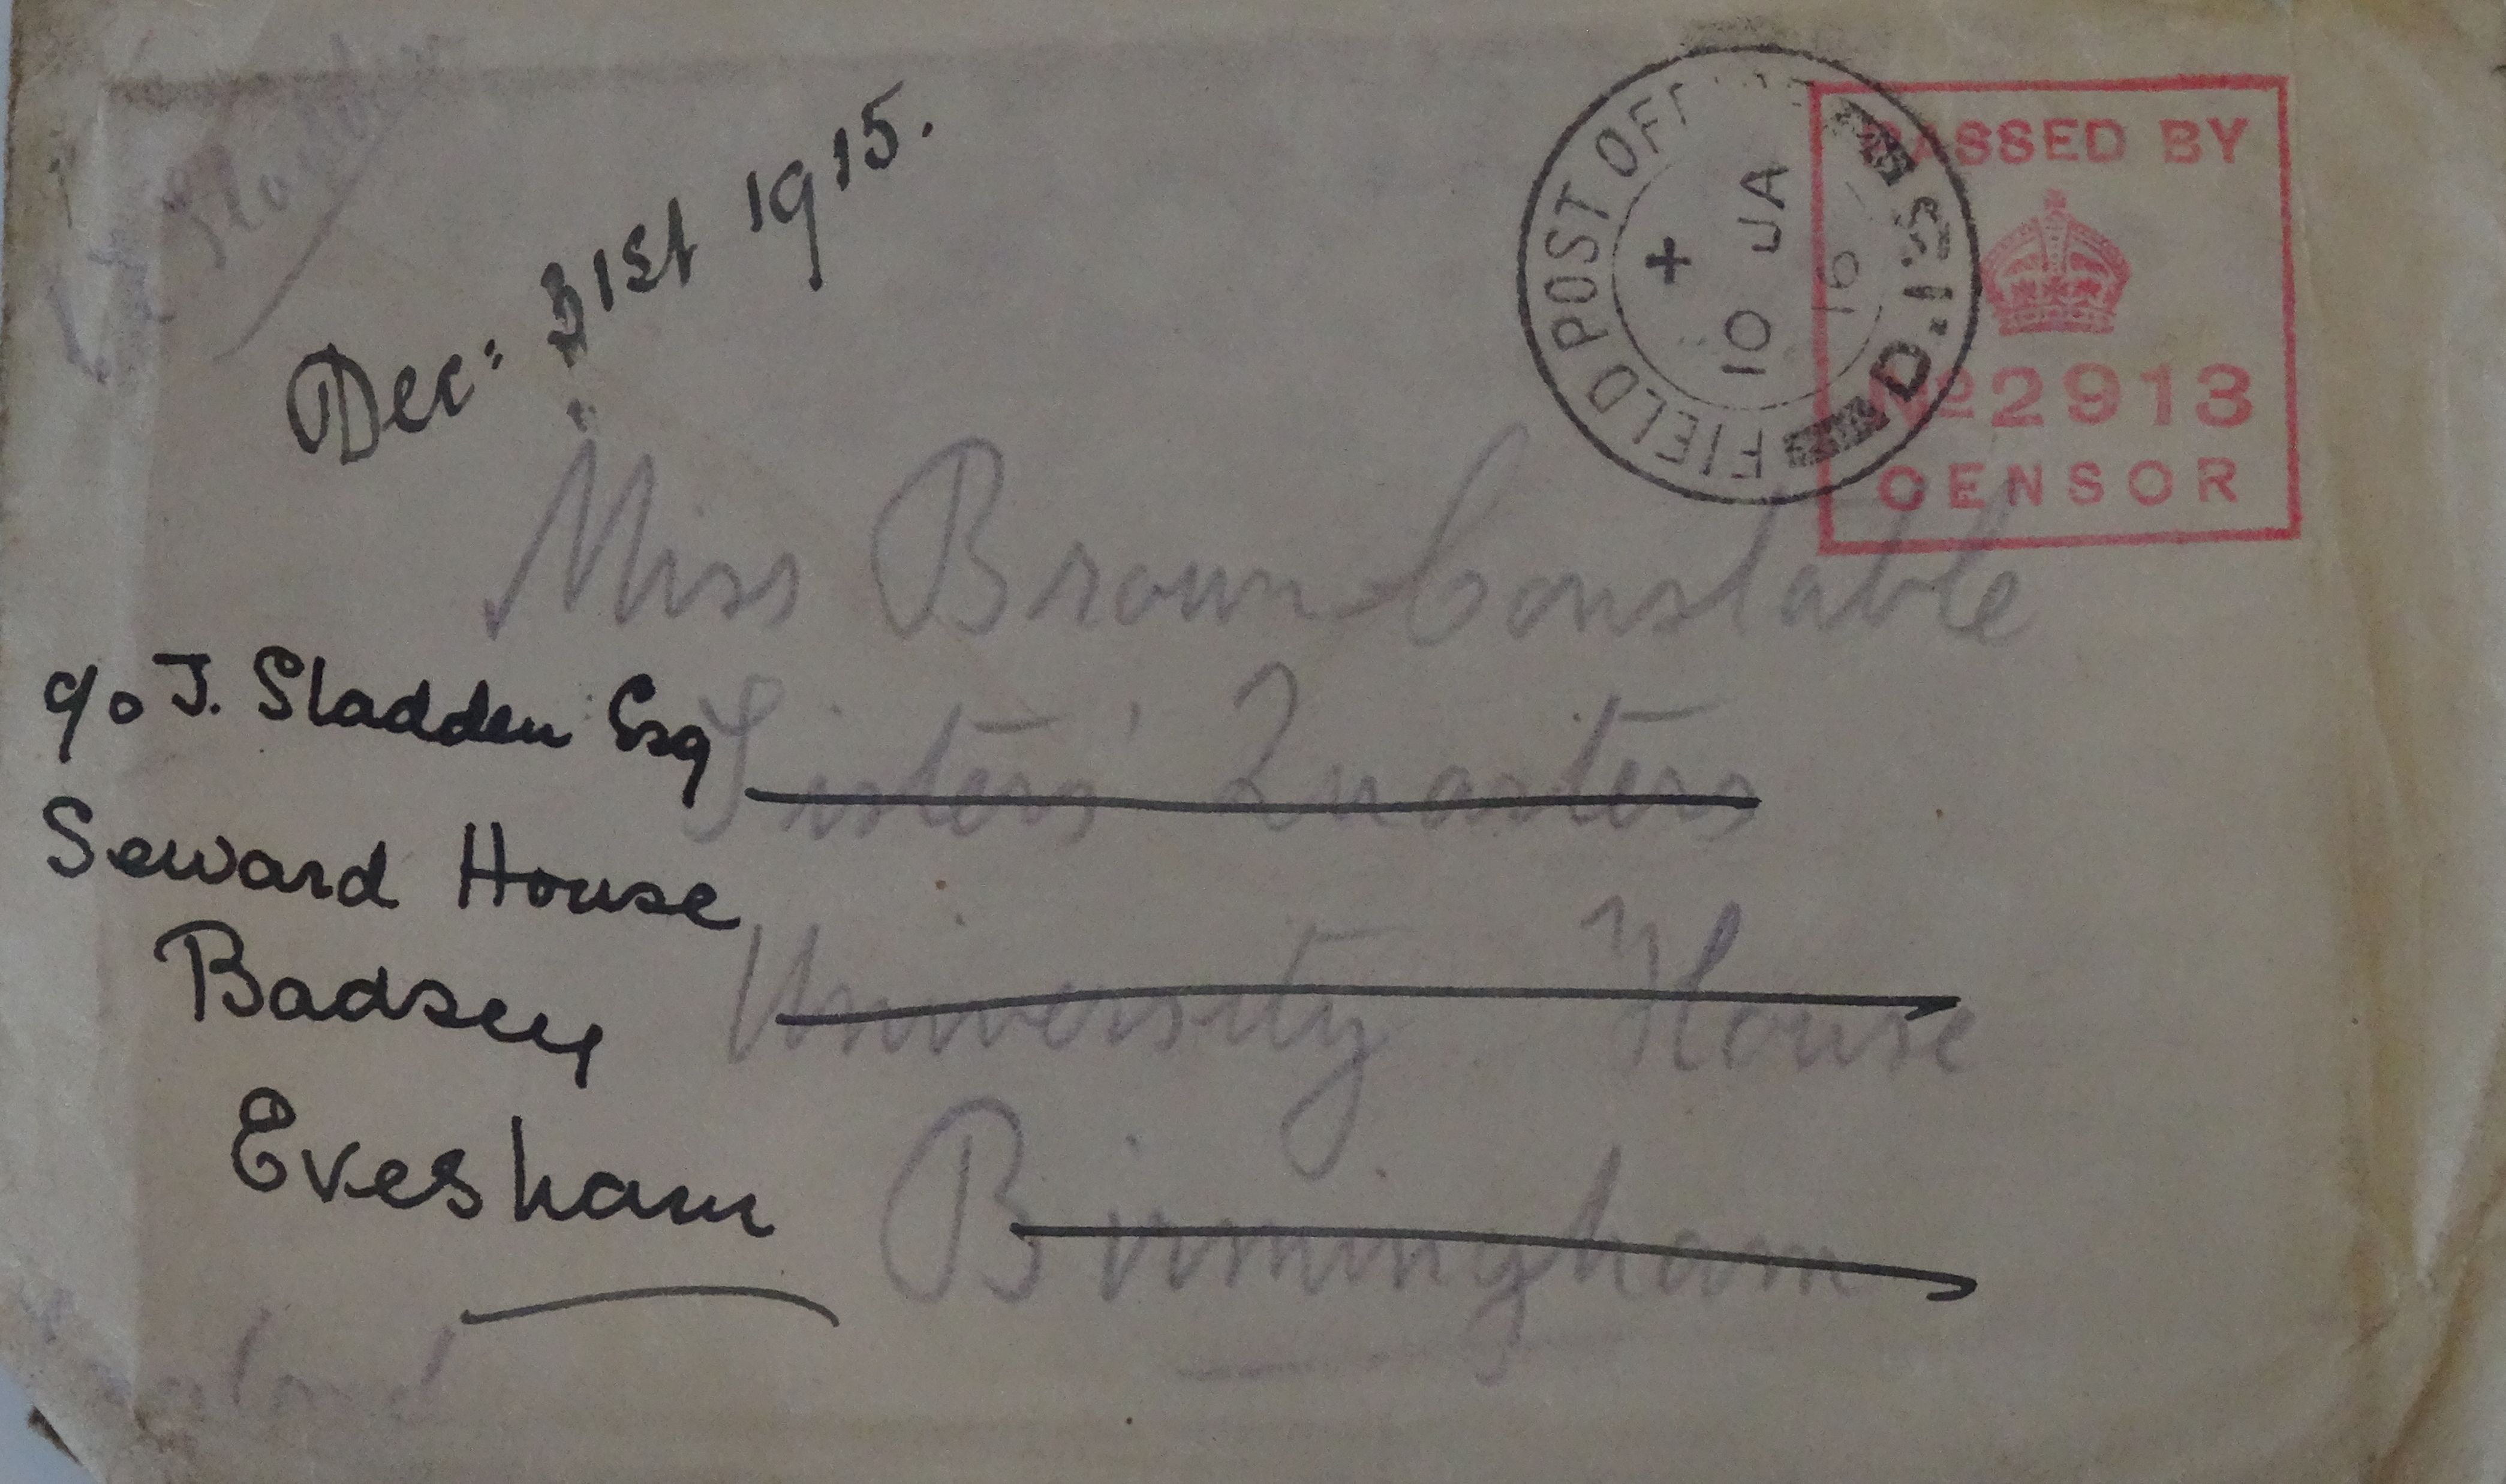 Dec: 31st 1915.
FIELD POST OFF
D.13
10 JA
16
PASSED BY
No 2913
CENSOR
Miss Brown-Constable
c/o J. Sladden Esq
Sisters' Quarters
Seward House
University House
Badsey
Evesham
Birmingham